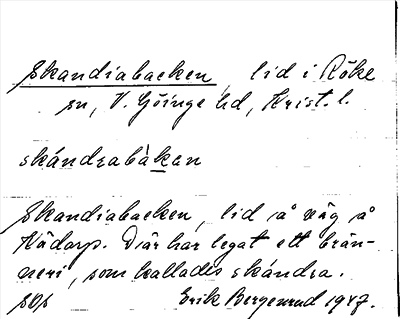 Skandiabacken, lid i Röke
sn, V. Göinge hd, Krist. l.
skándrabàkan
Skandiabacken, lid å väg å
Nådarp. Där har legat ett brän-
neri, som kallades skándra.
Erik Bergenrud 1947.